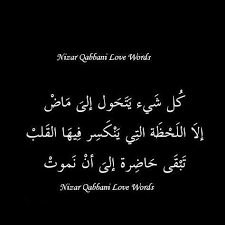 Nizar Qabbani Love Words
كُل شَيء يَتَحَول إلىَ مَاضْ
إلاَ اللَحْظَة التِي يَنْكَسِر فِيهَا القَلبْ
تَبْقَى حَاضِرة إلىَ أنْ نَموتْ
Nizar Qabbani Love Words